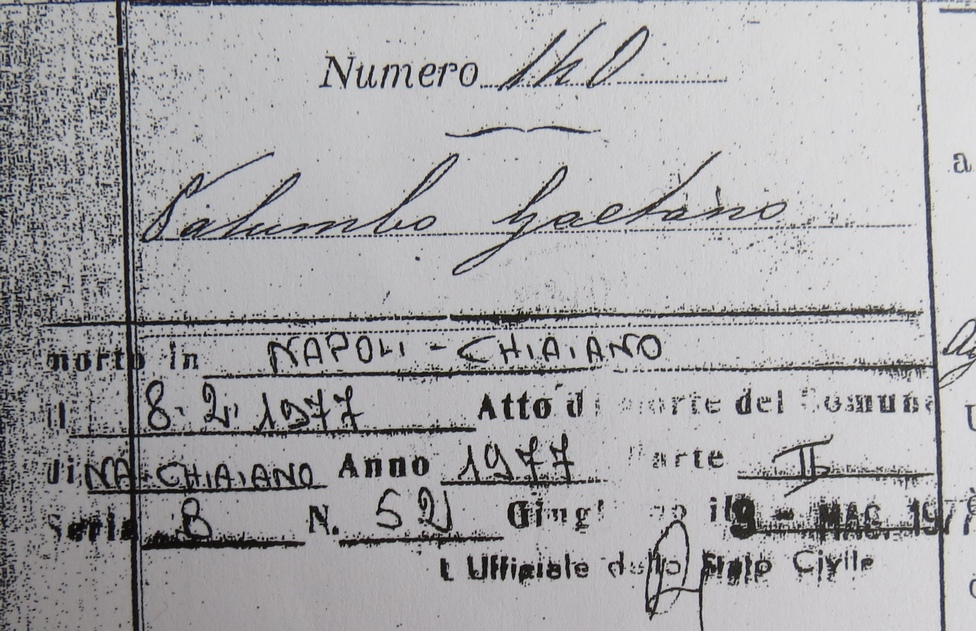 Numero 140
Palumbo Gaetano
morto in NAPOLI - CHIAIANO
il 8. 2. 1977 Atto di morte del Comune
di NA-CHIAIANO Anno 1977 Parte II
Serie B N. 52 il 9 - MAG. 197
L Ufficiale dello Stato Civile
a